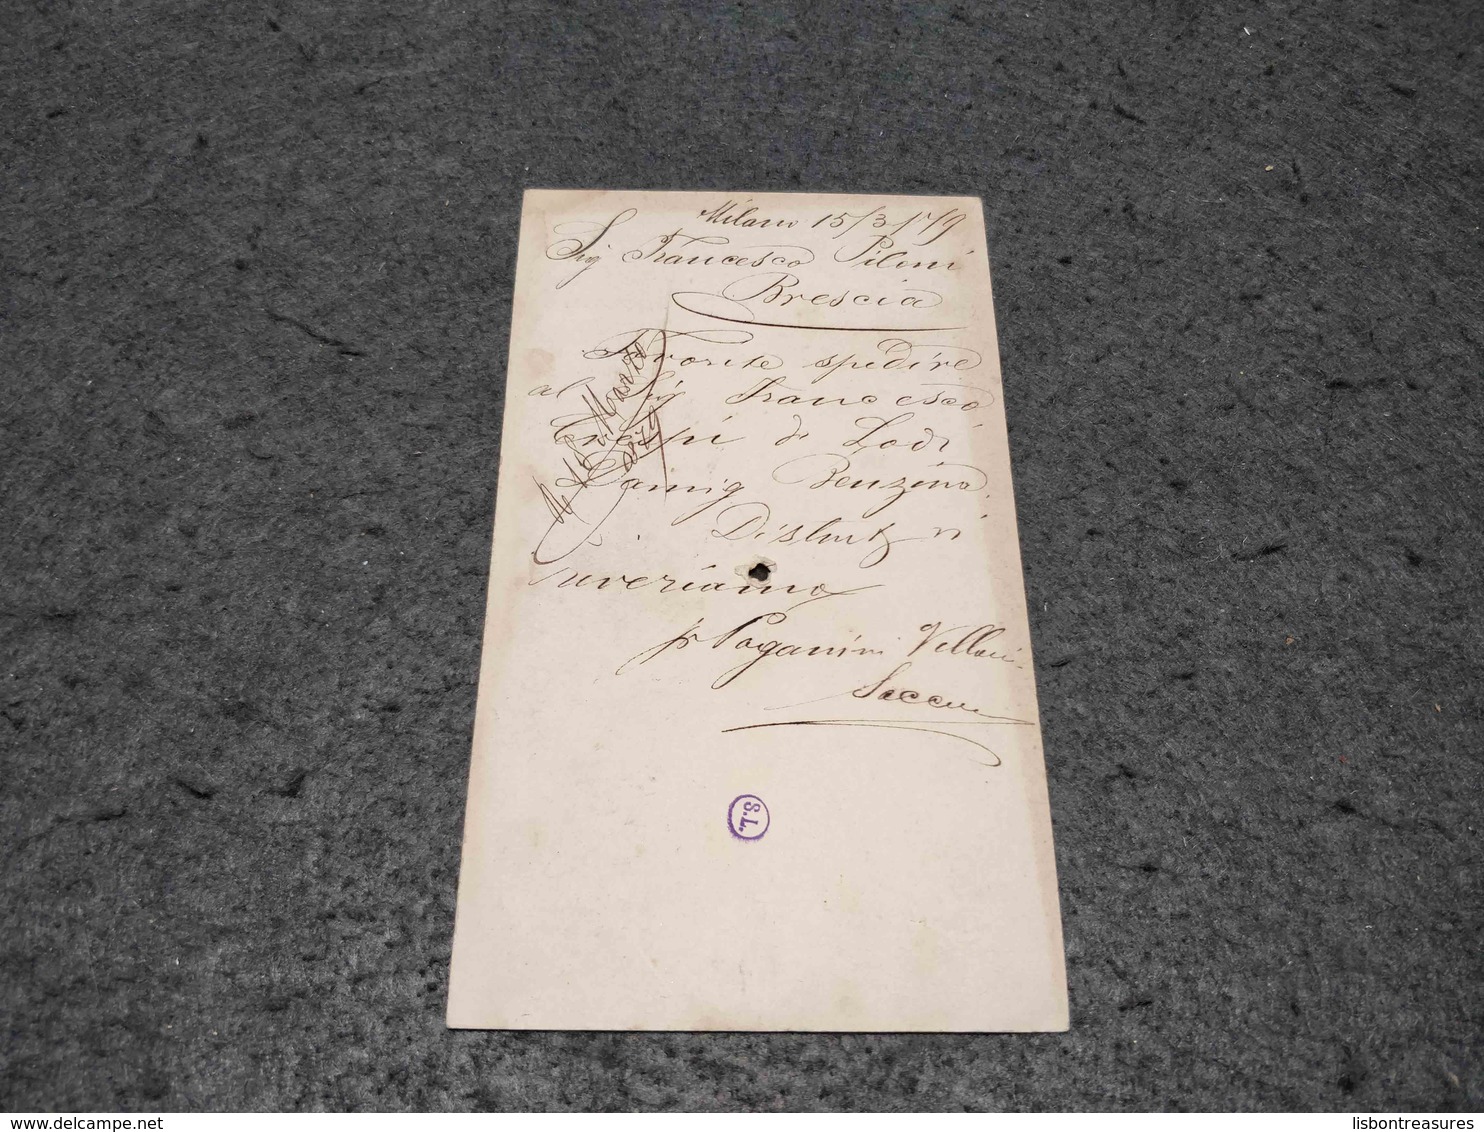 Milano 15/3/79
Sig Francesco Piloni
Brescia
Favorite spedire
al Sig Francesco
Crespi di Lodi
Damig Benzina.
Distint
riveriamo
pr Paganini Villani
16 Marzo
1879
S.L.
lisbontreasures